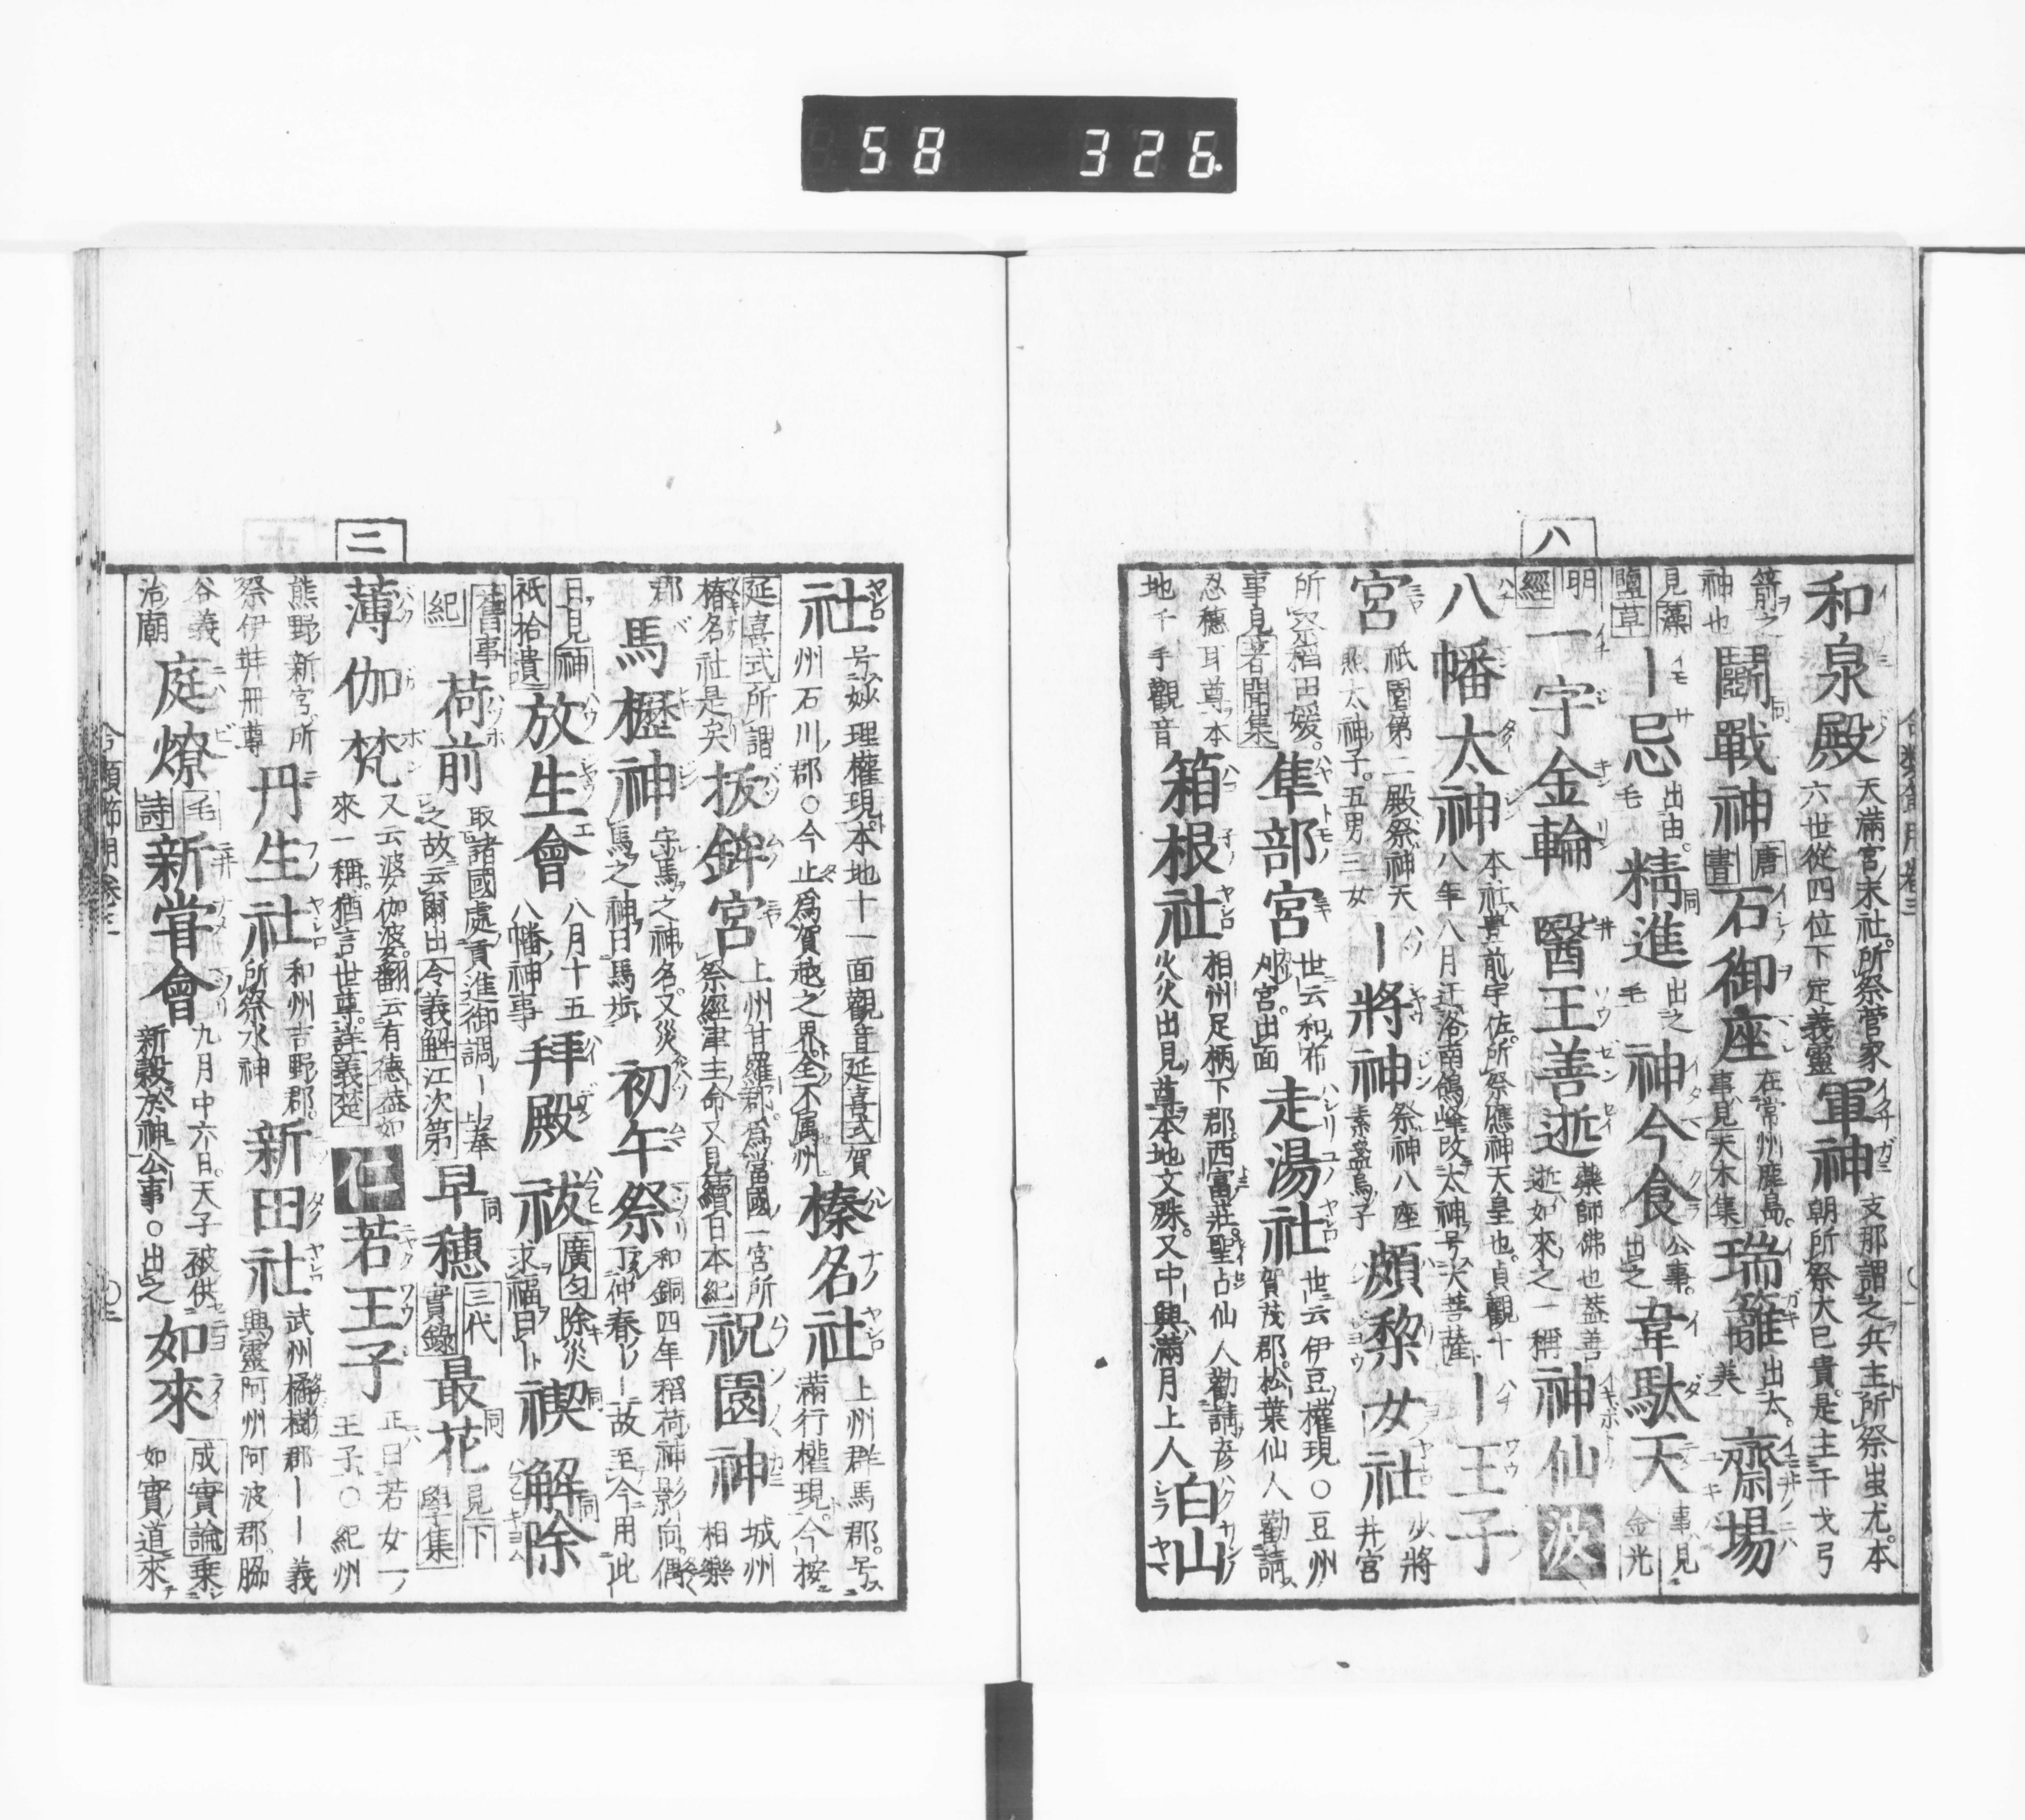 58 326
和泉殿 天滿宮末社所祭菅家六世從四位下定義靈 軍神 支那謂之兵主所祭蚩尤本朝所祭大己貴是主干戈弓
箭之神也 鬪戰神 唐書 石御座 在常州鹿島事見夫木集 瑞籬 出太美 齋場
見藻鹽草 ー忌 出由毛 精進 出之毛 神今食 公事出之 韋駄天 事見金光
明經 一字金輪 醫王善逝 藥師佛也益善逝如來之一稱 神仙 波
八
八幡太神 本社豊前宇佐所祭應神天皇也貞觀十八年八月迁洛南鴿峰改太神号大菩薩 ー王子
宮 祇園第二殿祭神天照太神子五男三女 ー將神 祭神八座素盞烏子 頗梨女社 少將井宮
所祭稻田媛事見著聞集 隼部宮 世云和布刈宮出面 走湯社 世云伊豆權現〇豆州賀茂郡松葉仙人勸請
忍穗耳尊本地千手觀音 箱根社 相州足柄下郡西富莊聖占仙人勸請彦火火出見尊本地文殊又中興滿月上人 白山
社 号妙理權現本地十一面觀音延喜式賀州石川郡〇今止爲賀越之界全不属州 榛名社 上州群馬郡号滿行權現今按
延喜式所謂椿名社是矣 抜鉾宮 上州甘羅郡爲當國一宮所祭經津主命又見續日本紀 祝園神 城州相樂
郡 馬櫪神 守馬之神名又災馬之神日馬歩 初午祭 和銅四年稻荷神影向偶丁仲春ーー故至今用此
日見神祇拾遺 放生會 八月十五八幡神事 拜殿 祓 廣匀除災求福曰ー 禊 解除
舊事紀 荷前 取諸國處貢進御調ー上奉之故云爾出令義解江次第 早穗 三代實錄 最花 見下學集
二
薄伽梵 又云波伽波翻云有德益如來一稱猶言世尊詳義楚 仁 若王子 正曰若女一王子〇紀州
熊野新宮所祭伊弉冊尊 丹生社 和州吉野郡所祭水神 新田社 武州橘樹郡ーー義興靈阿州阿波郡脇
谷義治廟 庭燎 毛詩 新甞會 九月中六日天子被供新穀於神公事〇出之 如來 成實論乗如實道來